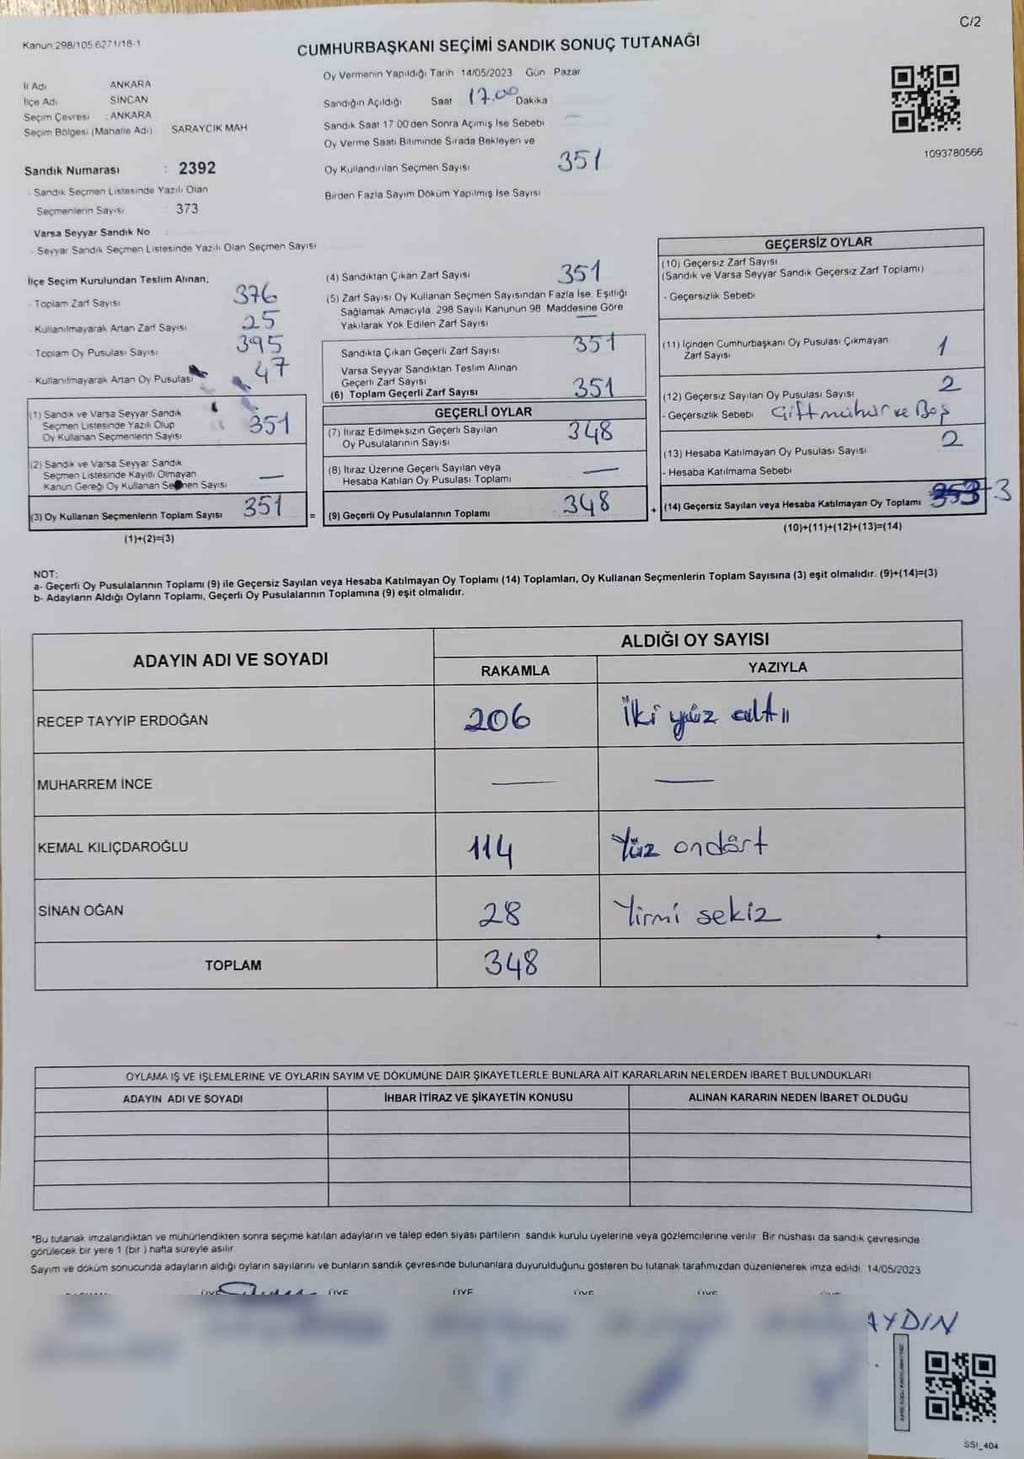 C/2
Kanun 298/105.6271/18-1
CUMHURBAŞKANI SEÇİMİ SANDIK SONUÇ TUTANAĞI
İl Adı ANKARA
İlçe Adı SİNCAN
Seçim Çevresi : ANKARA
Seçim Bölgesi (Mahalle Adı) SARAYCIK MAH
Sandık Numarası : 2392
- Sandık Seçmen Listesinde Yazılı Olan
Seçmenlerin Sayısı 373
Varsa Seyyar Sandık No
- Seyyar Sandık Seçmen Listesinde Yazılı Olan Seçmen Sayısı
Oy Vermenin Yapıldığı Tarih 14/05/2023 Gün Pazar
Sandığın Açıldığı Saat 17.00 Dakika
Sandık Saat 17 00'den Sonra Açımış İse Sebebi
Oy Verme Saati Bitiminde Sırada Bekleyen ve
Oy Kullandırılan Seçmen Sayısı 351
Birden Fazla Sayım Döküm Yapılmış İse Sayısı
1093780566
İlçe Seçim Kurulundan Teslim Alınan;
- Toplam Zarf Sayısı 376
- Kullanılmayarak Artan Zarf Sayısı 25
- Toplam Oy Pusulası Sayısı 395
- Kullanılmayarak Artan Oy Pusulası 47
(1) Sandık ve Varsa Seyyar Sandık
Seçmen Listesinde Yazılı Olup
Oy Kullanan Seçmenlerin Sayısı 351
(2) Sandık ve Varsa Seyyar Sandık
Seçmen Listesinde Kayıtlı Olmayan
Kanun Gereği Oy Kullanan Seçmen Sayısı —
(3) Oy Kullanan Seçmenlerin Toplam Sayısı 351 =
(1)+(2)=(3)
(4) Sandıktan Çıkan Zarf Sayısı 351
(5) Zarf Sayısı Oy Kullanan Seçmen Sayısından Fazla İse, Eşitliği
Sağlamak Amacıyla 298 Sayılı Kanunun 98 Maddesine Göre
Yakılarak Yok Edilen Zarf Sayısı —
Sandıkta Çıkan Geçerli Zarf Sayısı 351
Varsa Seyyar Sandıktan Teslim Alınan
Geçerli Zarf Sayısı
(6) Toplam Geçerli Zarf Sayısı 351
GEÇERLİ OYLAR
(7) İtiraz Edilmeksizin Geçerli Sayılan
Oy Pusulalarının Sayısı 348
(8) İtiraz Üzerine Geçerli Sayılan veya
Hesaba Katılan Oy Pusulası Toplamı —
(9) Geçerli Oy Pusulalarının Toplamı 348 +
GEÇERSİZ OYLAR
(10) Geçersiz Zarf Sayısı
(Sandık ve Varsa Seyyar Sandık Geçersiz Zarf Toplamı)
- Geçersizlik Sebebi
(11) İçinden Cumhurbaşkanı Oy Pusulası Çıkmayan
Zarf Sayısı 1
(12) Geçersiz Sayılan Oy Pusulası Sayısı 2
- Geçersizlik Sebebi Çift mühür ve Boş
(13) Hesaba Katılmayan Oy Pusulası Sayısı 2
- Hesaba Katılmama Sebebi
(14) Geçersiz Sayılan veya Hesaba Katılmayan Oy Toplamı 353 -3
(10)+(11)+(12)+(13)=(14)
NOT:
a- Geçerli Oy Pusulalarının Toplamı (9) ile Geçersiz Sayılan veya Hesaba Katılmayan Oy Toplamı (14) Toplamları, Oy Kullanan Seçmenlerin Toplam Sayısına (3) eşit olmalıdır. (9)+(14)=(3)
b- Adayların Aldığı Oyların Toplamı, Geçerli Oy Pusulalarının Toplamına (9) eşit olmalıdır.
ADAYIN ADI VE SOYADI ALDIĞI OY SAYISI
RAKAMLA YAZIYLA
RECEP TAYYIP ERDOĞAN 206 İki yüz altıı
MUHARREM İNCE — —
KEMAL KILIÇDAROĞLU 114 Yüz ondört
SİNAN OĞAN 28 Yirmi sekiz
TOPLAM 348
OYLAMA İŞ VE İŞLEMLERİNE VE OYLARIN SAYIM VE DÖKÜMÜNE DAİR ŞİKAYETLERLE BUNLARA AİT KARARLARIN NELERDEN İBARET BULUNDUKLARI
ADAYIN ADI VE SOYADI İHBAR İTİRAZ VE ŞİKAYETİN KONUSU ALINAN KARARIN NEDEN İBARET OLDUĞU
*Bu tutanak imzalandıktan ve mühürlendikten sonra seçime katılan adayların ve talep eden siyasi partilerin sandık kurulu üyelerine veya gözlemcilerine verilir. Bir nüshası da sandık çevresinde
görülecek bir yere 1 (bir ) hafta süreyle asılır.
Sayım ve döküm sonucunda adayların aldığı oyların sayılarını ve bunların sandık çevresinde bulunanlara duyurulduğunu gösteren bu tutanak tarafımızdan düzenlenerek imza edildi. 14/05/2023
ÜYE ÜYE ÜYE ÜYE ÜYE ÜYE
AYDIN
SSI_404